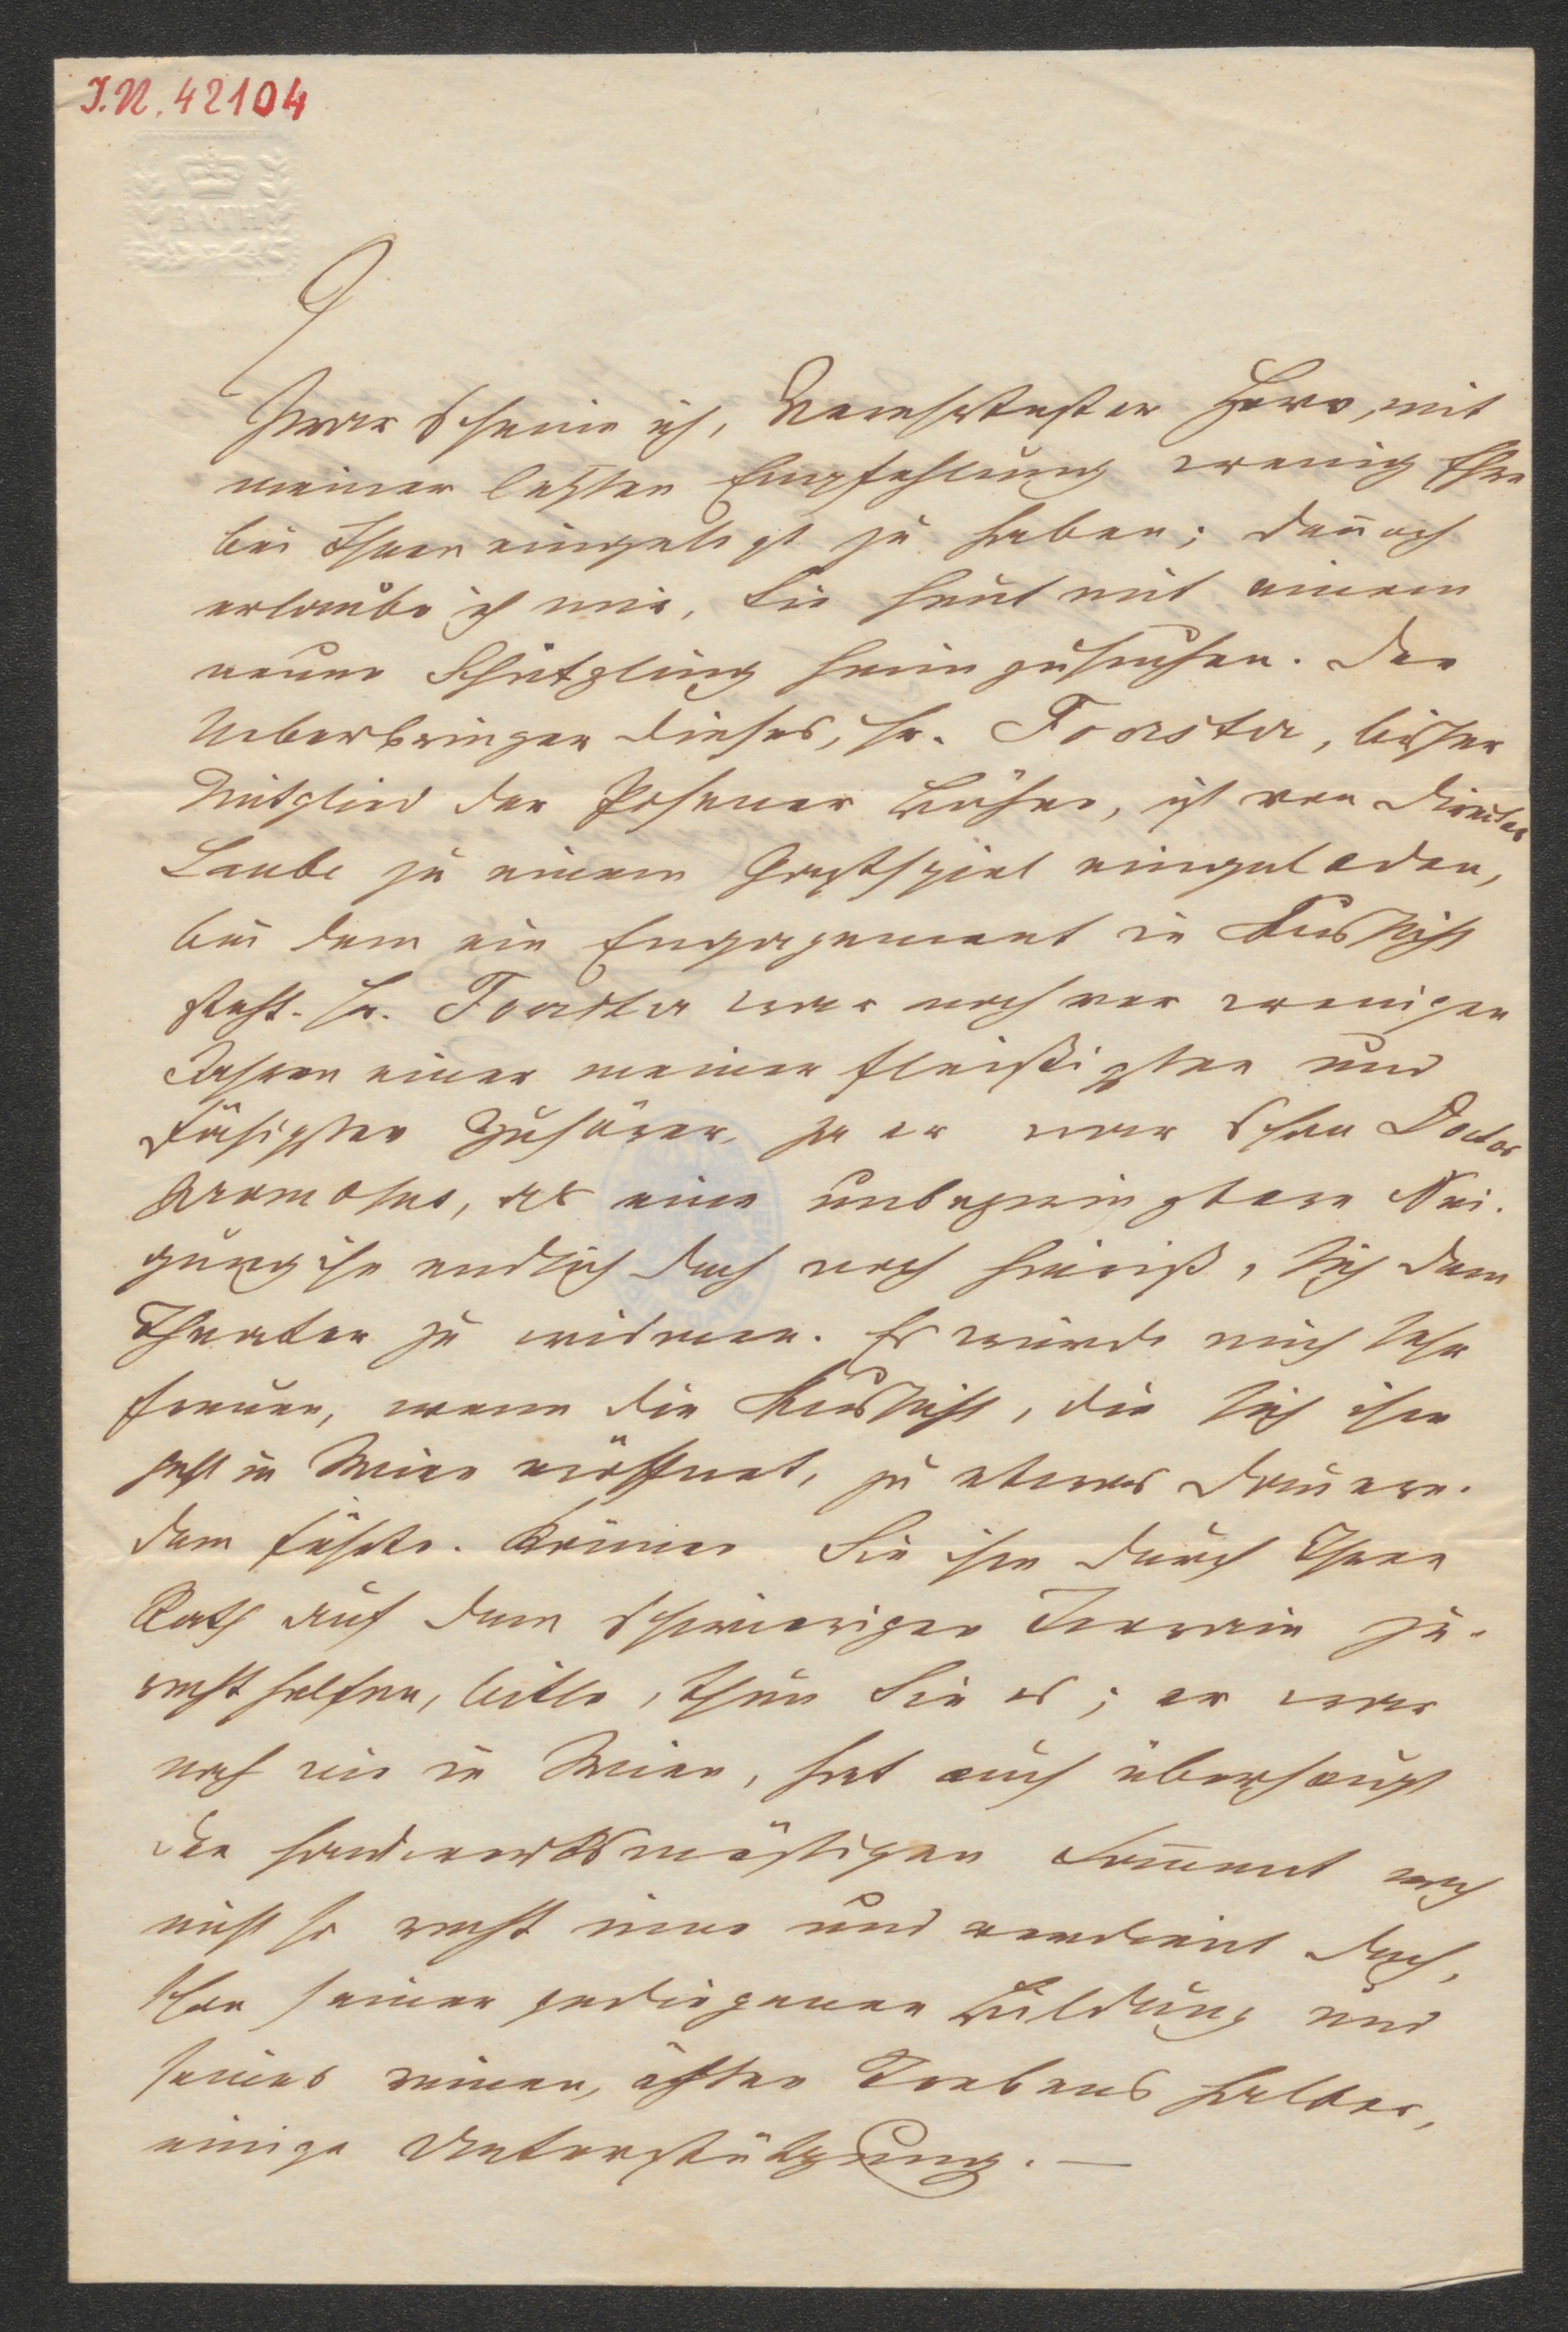 I.N. 42104
BATH
Zwar scheine ich, Verehrtester Herr, mit
meiner letzten Empfehlung wenig Ehre
bei Ihnen eingelegt zu haben; dennoch
erlaube ich mir, Sie heut mit einem
neuen Schützling heimzusuchen. Der
Ueberbringer dieses, Hr. Foerster, bisher
Mitglied der Posener Bühne, ist von Director
Laube zu einem Gastspiel eingeladen,
bei dem ein Engagement in Aussicht
steht. Hr. Foerster war noch vor wenigen
Jahren einer meiner fleißigsten und
fähigsten Zuhörer, ja er war schon Doctor
promotus, als eine unbezwingbare Nei-
gung ihn endlich doch noch hinriß, sich dem
Theater zu widmen. Es würde mich sehr
freuen, wenn die Aussicht, die sich ihm
jetzt in Wien eröffnet, zu etwas Dauern-
dem führte. Können Sie ihm durch Ihren
Rath auf dem schwierigen Terrain zu-
recht helfen, bitte, thun Sie es; er war
noch nie in Wien, hat auch überhaupt
den handwerksmäßigen Comment noch
nicht so recht inne und verdient doch,
schon seiner gediegenen Bildung und
seines reinen, ächten Strebens halber,
einige Unterstützung. —